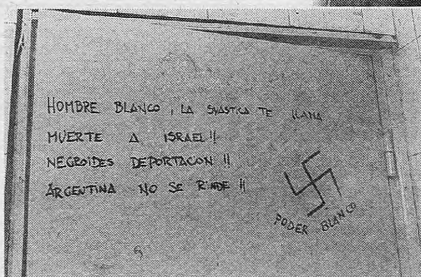 HOMBRE BLANCO, LA SVASTICA TE LLAMA
MUERTE A ISRAEL!!
NEGROIDES DEPORTACON!!
ARGENTINA NO SE RINDE!!
PODER BLANCO